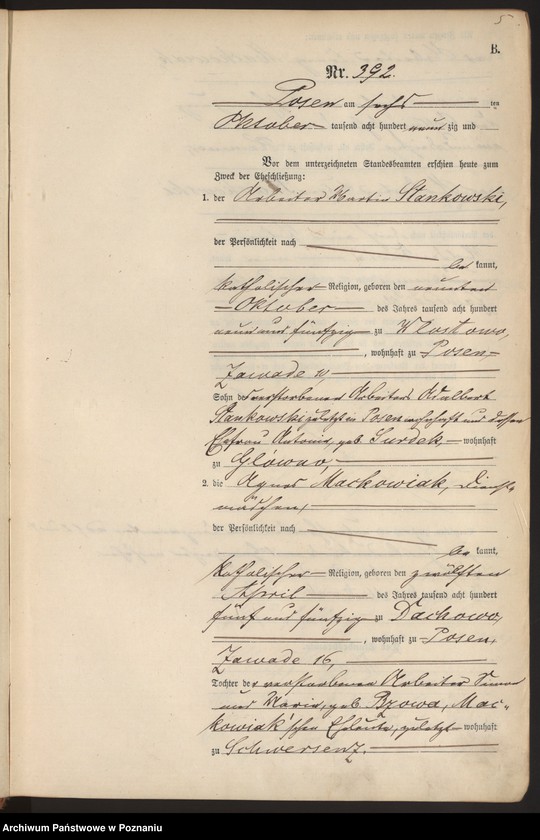 5
B.
Nr. 392.
Posen am sechsten
Oktober tausend acht hundert neunzig und
Vor dem unterzeichneten Standesbeamten erschien heute zum
Zweck der Eheschließung:
1. der Arbeiter Martin Stankowski,
der Persönlichkeit nach
be kannt,
katholischer Religion, geboren den neunten
Oktober des Jahres tausend acht hundert
neun und fünfzig zu Wlostowo,
, wohnhaft zu Posen-
Zawade 11,
Sohn des verstorbenen Arbeiters Adalbert
Stankowski zuletzt in Posen wohnhaft und dessen
Ehefrau Antonie, geb. Surdek, wohnhaft
zu Glówno,
2. die Agnes Mackowiak, Dienst-
mädchen,
der Persönlichkeit nach
be kannt,
katholischer Religion, geboren den zwölften
April des Jahres tausend acht hundert
fünf und fünfzig zu Dachowo,
, wohnhaft zu Posen,
Zawade 16,
Tochter der verstorbenen Arbeiter Simon
und Marie, geb. Bzowa, Mac-
kowiak'schen Eheleute, zuletzt wohnhaft
zu Schwersenz.
Archiwum Państwowe w Poznaniu